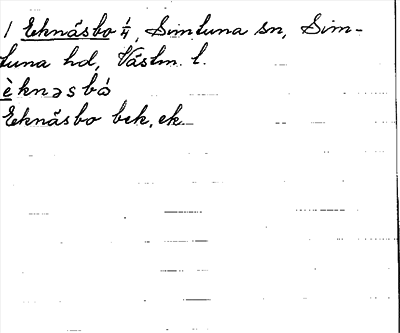 1 Eknäsbo 1/4, Simtuna sn, Sim-
tuna hd, Västm. l.
èknəsbó
Eknäsbo bek. ek.